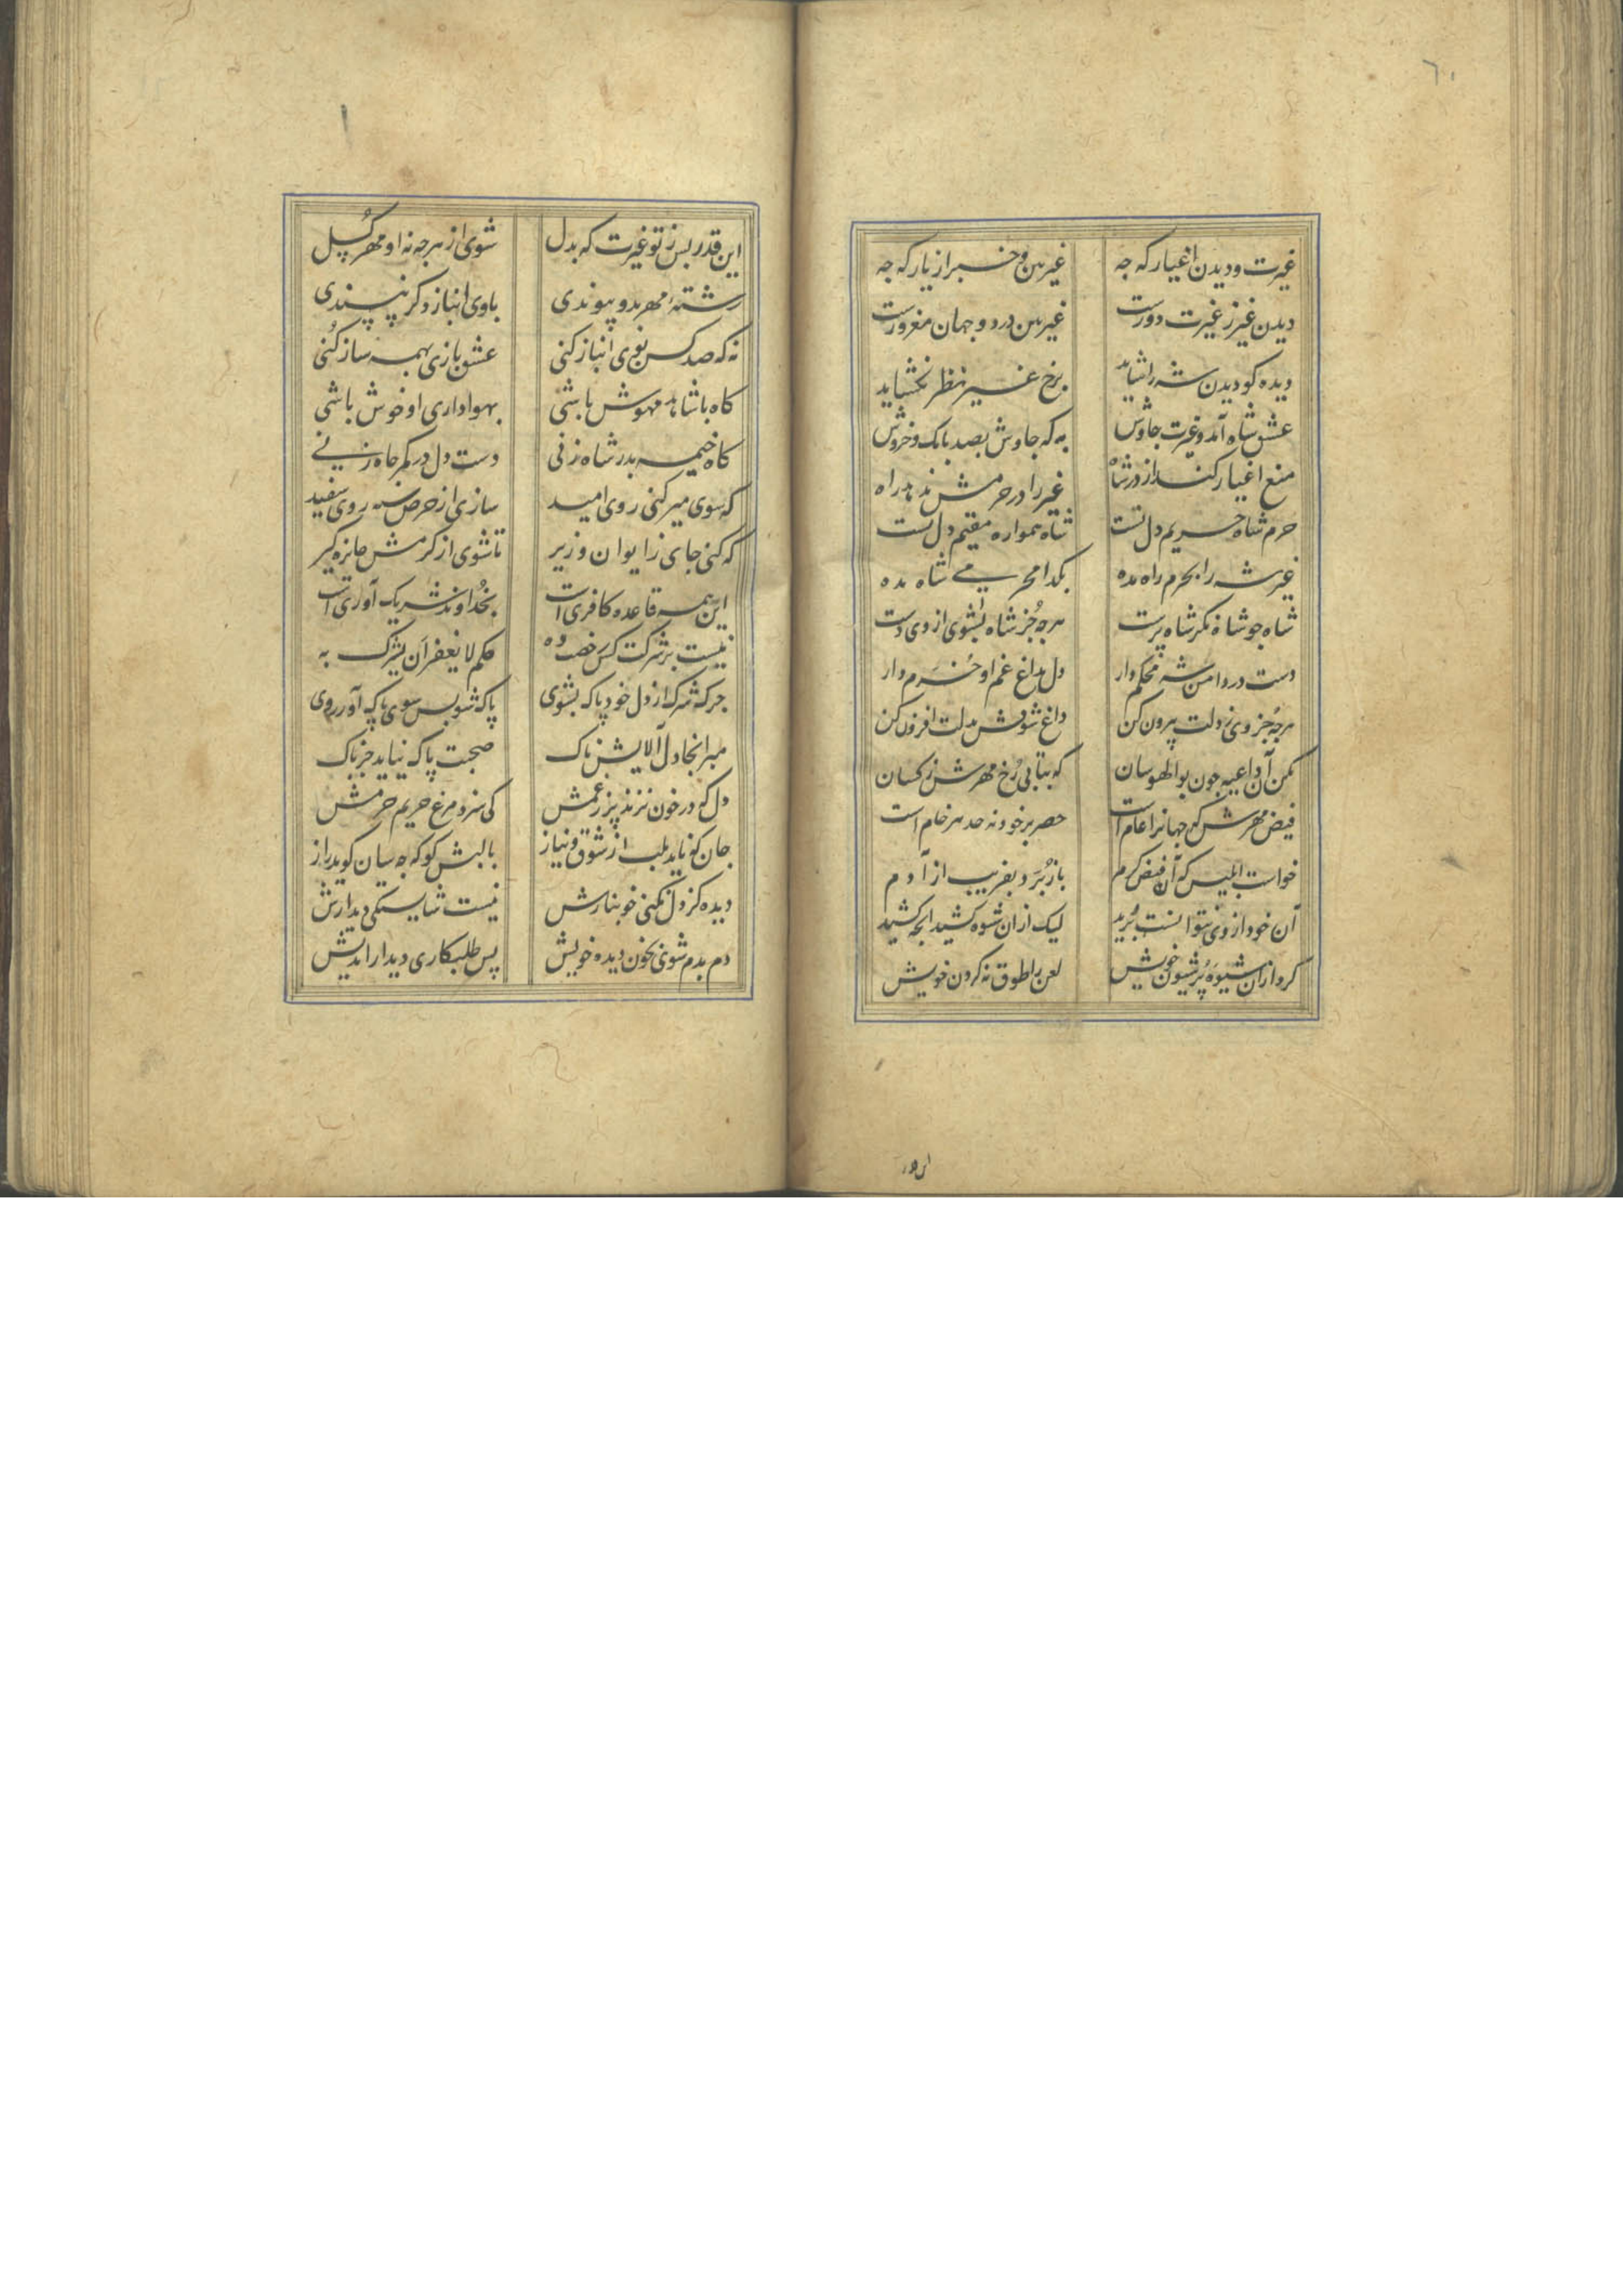 ٦٠
غیرت و دیدن اغیار که چه غیربین و خبر از یار که چه
دیدن غیر ز غیرت دورست غیربین در دو جهان مغرورست
دیده کو دیدن شه را شاید برخ غیر نظر نگشاید
عشق شاه آمد و غیرت جاوش به که جاوش بصد بانک و خروش
منع اغیار کند از در شاه غیر را در حرمش ندهد راه
حرم شاه حریم دل تست شاه همواره مقیم دل تست
غیر شه را بحرم راه مده بکدا محرمی شاه مده
شاه جو شاه نکر شاه پرست هرچه جز شاه بشوی از وی دست
دست در دامن شه محکم دار دل بداغ غم او خرم دار
هرچه جز وی ز دلت بیرون کن داغ شوقش بدلت افزون کن
مکن آن داعیه چون بوالهوسان که بتابی رخ مهرش ز کسان
فیض مهرش که جهانرا عام است حصر بر خود نه حد هر خام است
خواست ابلیس که آن فیض کرم باز برد بفریب از آدم
آن خود از وی نتوانست برید لیک از ان شیوه کشید انچه کشید
کرد از ان شیوه پر شیون خویش لعن را طوق نه کردن خویش
این قدر
این قدر بس ز تو غیرت که بدل شوی از هرچه نه او مهر کسل
رشته مهر بدو پیوندی با وی انباز دکر نپسندی
نه که صد کس بوی انباز کنی عشق بازی بهمه ساز کنی
کاه با شاهد مهوش باشی بهواداری او خوش باشی
کاه خیمه بدر شاه زنی دست دل در کمر جاه زنی
که سوی میر کنی روی امید سازی از حرص سیه روی سفید
که کنی جای در ایوان وزیر تا شوی از کرمش جایزه کیر
این همه قاعده کافری است بخداوند شریک آوری است
نیست بر شرکت کس رخصت ده حکم لا یغفر ان یشرک به
چرک شرک از دل خود پاک بشوی پاک شو پس سوی پاک آور روی
مبر انجا دل آلایش ناک صحبت پاک نیاید جز پاک
دل که در خون نزند پر ز غمش کی سزد مرغ حریم حرمش
جان که ناید بلب از شوق و نیاز با لبش کو که چه سان کوید راز
دیده کز دل نکنی خونبارش نیست شایستکی دیدارش
دم بدم شوی بخون دیده خویش پس طلبکاری دیدار اندیش